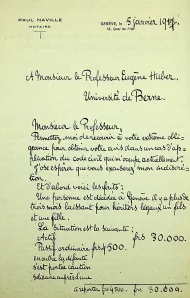 PAUL NAVILLE
NOTAIRE
GENÈVE, le 5 janvier
A Monsieur le Professeur Eugène Huber.
Université de Berne.
Monsieur le Professeur,
Permettez moi de recourir à votre extrême obli-
geance pour obtenir votre avis dans un cas d'ap-
plication du code civil qui m'occupe actuellement.
J'ose espérer que vous excuserez mon indiscré-
tion.
Et d'abord voici les faits:
Une personne est décédée à Genève il y a plus de
trois mois laissant pour héritiers légaux un fils
et une fille.
La situation est la suivante:
Actif frs 30.000.
Passif ordinaire frs 500.
ensuite le défunt
s'est portée caution
solidaire
à reporter frs 500. frs 30.000.